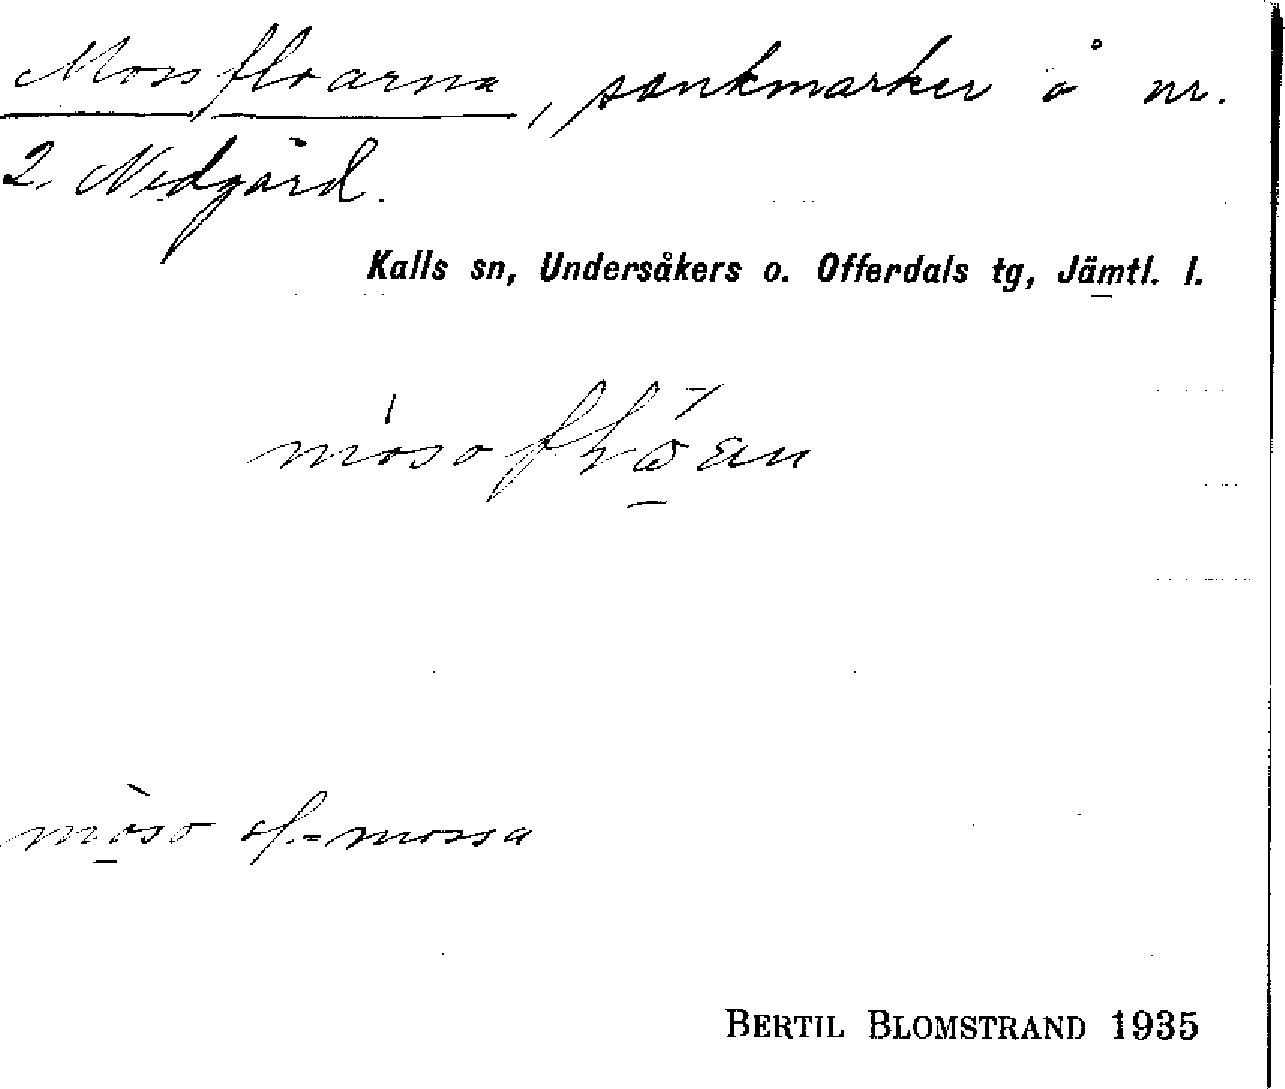 Mossfloarna, sankmarker å nr.
2. Nedgård.
Kalls sn, Undersåkers o. Offerdals tg, Jämtl. l.
BERTIL BLOMSTRAND 1935